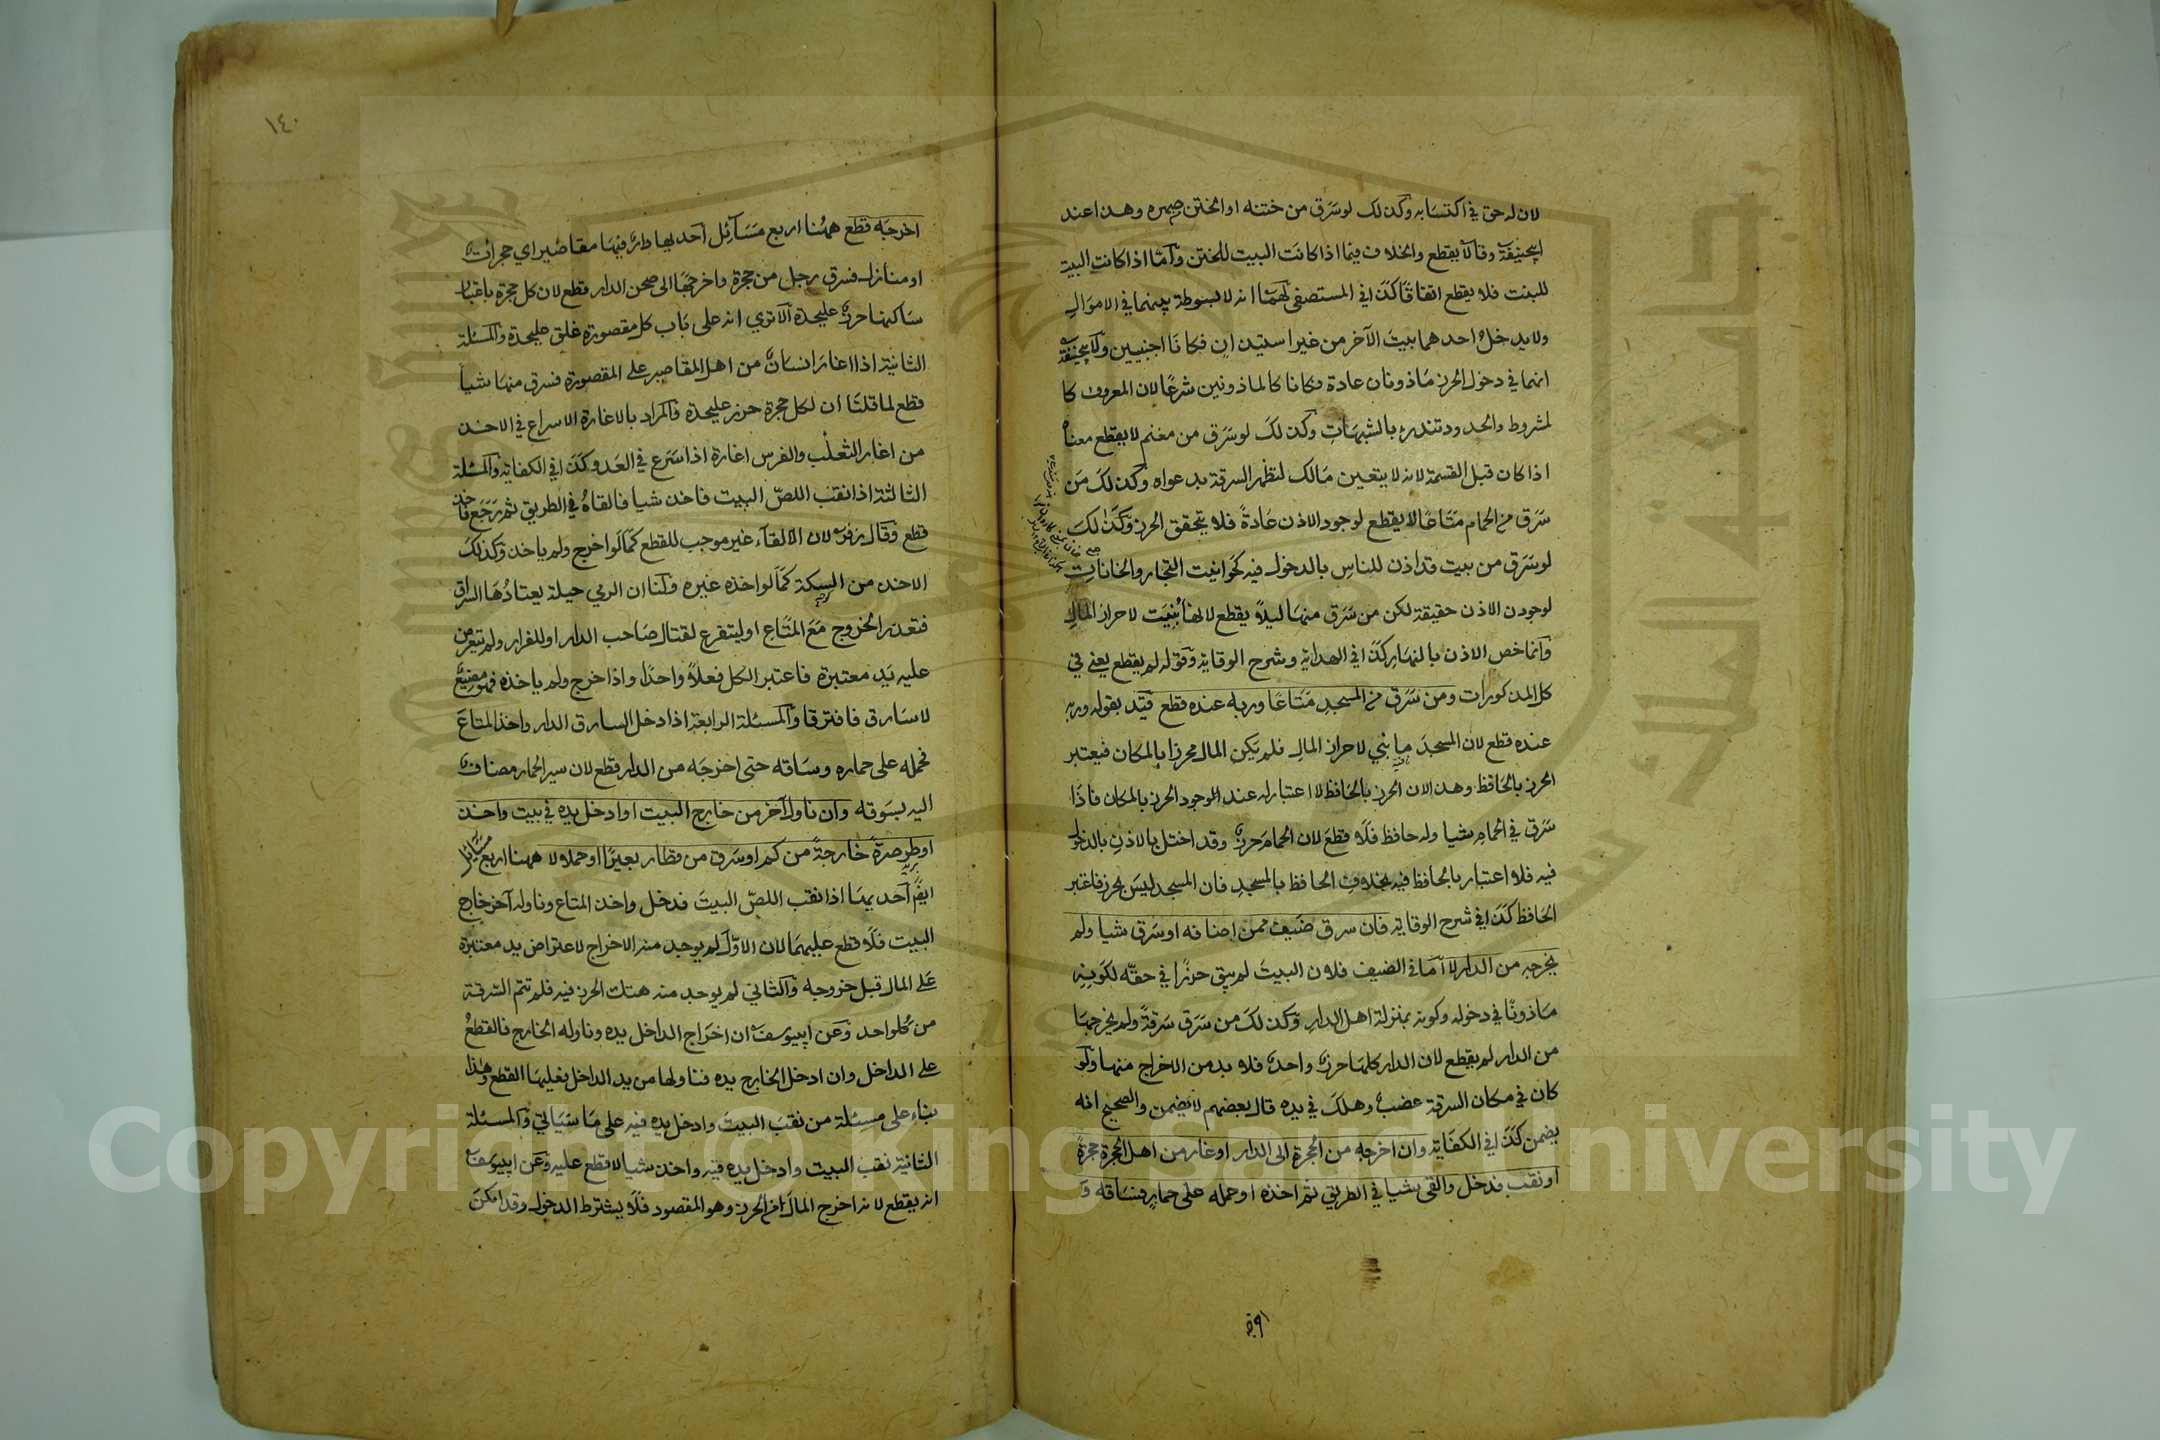 لان له حق في اكتسابه وكذلك لو سرق من ختنه او الختن صهره وهذا عند
ابيحنيفة وقالا يقطع والخلاف فيما اذا كانت البيت للختن واما اذا كانت البيت
للبنت فلا يقطع اتفاقا كذا في المستصفى لهما انه لا بسوطة بينهما في الاموال
ولا يدخل احدهما بيت الآخر من غير استيذان فكانا اجنبيين ولابيحنيفة
انهما في دخول الحرز ماذونان عادة فكانا كالماذونين شرعا لان المعروف كا
لمشروط والحدود تندرء بالشبهات وكذلك لو سرق من مغنم لا يقطع معناه
اذا كان قبل القسمة لانه لا يتعين مالك لتظهر السرقة بدعواه وكذلك من
سرق من الحمام متاعا لا يقطع لوجود الاذن عادة فلا يتحقق الحرز وكذلك
لو سرق من بيت قد اذن للناس بالدخول فيه كحوانيت التجار والخانات
لوجود الاذن حقيقة لكن من سرق منها ليلا يقطع لانها بنيت لاحراز المال
وانما خص الاذن بالنهار كذا في الهداية وشرح الوقاية وقوله لم يقطع يعني في
كل المذكورات ومن سرق من المسجد متاعا وربه عنده قطع قيد بقوله وربه
عنده قطع لان المسجد ما بني لاحراز المال فلم يكن المال محرزا بالمكان فيعتبر
الحرز بالحافظ وهذا لان الحرز بالحافظ لا اعتبار له عند الوجود الحرز بالمكان فاذا
سرق في الحمام شيا وله حافظ فلا قطع لان الحمام حرز وقد اختل بالاذن بالدخول
فيه فلا اعتبار بالحافظ فيه بخلاف الحافظ بالمسجد فان المسجد ليس بحرز فاعتبر
الحافظ كذا في شرح الوقاية فان سرق ضيف ممن اضافه او سرق شيا ولم
يخرجه من الدار لا اما في الضيف فلان البيت لم يبق حرزا في حقه لكونه
ماذونا في دخوله وكونه بمنزلة اهل الدار وكذلك من سرق سرقة ولم يخرجها
من الدار لم يقطع لان الدار كلها حرز واحد فلا بد من الاخراج منها ولو
كان في مكان السرقة غصب وهلك في يده قال بعضهم لا يضمن والصحيح انه
يضمن كذا في الكفاية وان اخرجه من الحجرة الى الدار او غار من اهل الحجرة حجرة
او نقب فدخل والقى شيا في الطريق ثم اخذه او حمله على حمار فساقه و
١٤٠
اخرجه قطع ههنا اربع مسائل احديها دار فيها مقاصير اي حجرات
او منازل فسرق رجل من حجرة واخرجها الى صحن الدار قطع لان كل حجرة باعتبار
ساكنها حرز عليحدة الا ترى انه على باب كل مقصورة غلق عليحدة والمسئلة
الثانية اذا اغار انسان من اهل المقاصير على المقصورة فسرق منها شيا
قطع لما قلنا ان لكل حجرة حرز عليحدة والمراد بالاغارة الاسراع في الاخذ
من اغار الثعلب والفرس اغارة اذا سرع في العدو كذا في الكفاية والمسئلة
الثالثة اذا نقب اللص البيت فاخذ شيا فالقاه في الطريق ثم رجع فاخذ
قطع وقال زفر لان الالقاء غير موجب للقطع كما لو اخرج ولم ياخذ وكذلك
الاخذ من السكة كما لو اخذه غيره ولنا ان الرمي حيلة يعتادها السراق
فتعذر الخروج مع المتاع او ليتفرغ لقتال صاحب الدار او للفرار ولم تعرض
عليه يد معتبرة فاعتبر الكل فعلا واحدا واذا خرج ولم ياخذه فهو مضيع
لا سارق فافترقا والمسئلة الرابعة اذا دخل السارق الدار واخذ المتاع
فحمله على حماره وساقه حتى اخرجه من الدار قطع لان سير الحمار مضاف
اليه بسوقه وان ناول آخر من خارج البيت او ادخل يده في بيت واخذ
او طر صرة خارجة من كم او سرق من قطار بعيرا او حملا لا ههنا اربع مسائل
ايضا احديها اذا نقب اللص البيت فدخل واخذ المتاع وناوله آخر خارج
البيت فلا قطع عليهما لان الاول لم يوجد منه الاخراج لاعتراض يد معتبرة
على المال قبل خروجه والثاني لم يوجد منه هتك الحرز فيه فلم تتم السرقة
من كل واحد وعن ابييوسف ان اخراج الداخل يده وناوله الخارج فالقطع
على الداخل وان ادخل الخارج يده فتناولها من يد الداخل فعليهما القطع وهذا
بناء على مسئلة من نقب البيت وادخل يده فيه على ما سياتي والمسئلة
الثانية نقب البيت وادخل يده فيه واخذ شيا لا قطع عليه وعن ابييوسف
انه يقطع لانه اخرج المال من الحرز وهو المقصود فلا يشترط الدخول وقد امكن
Copyright © King Saud University